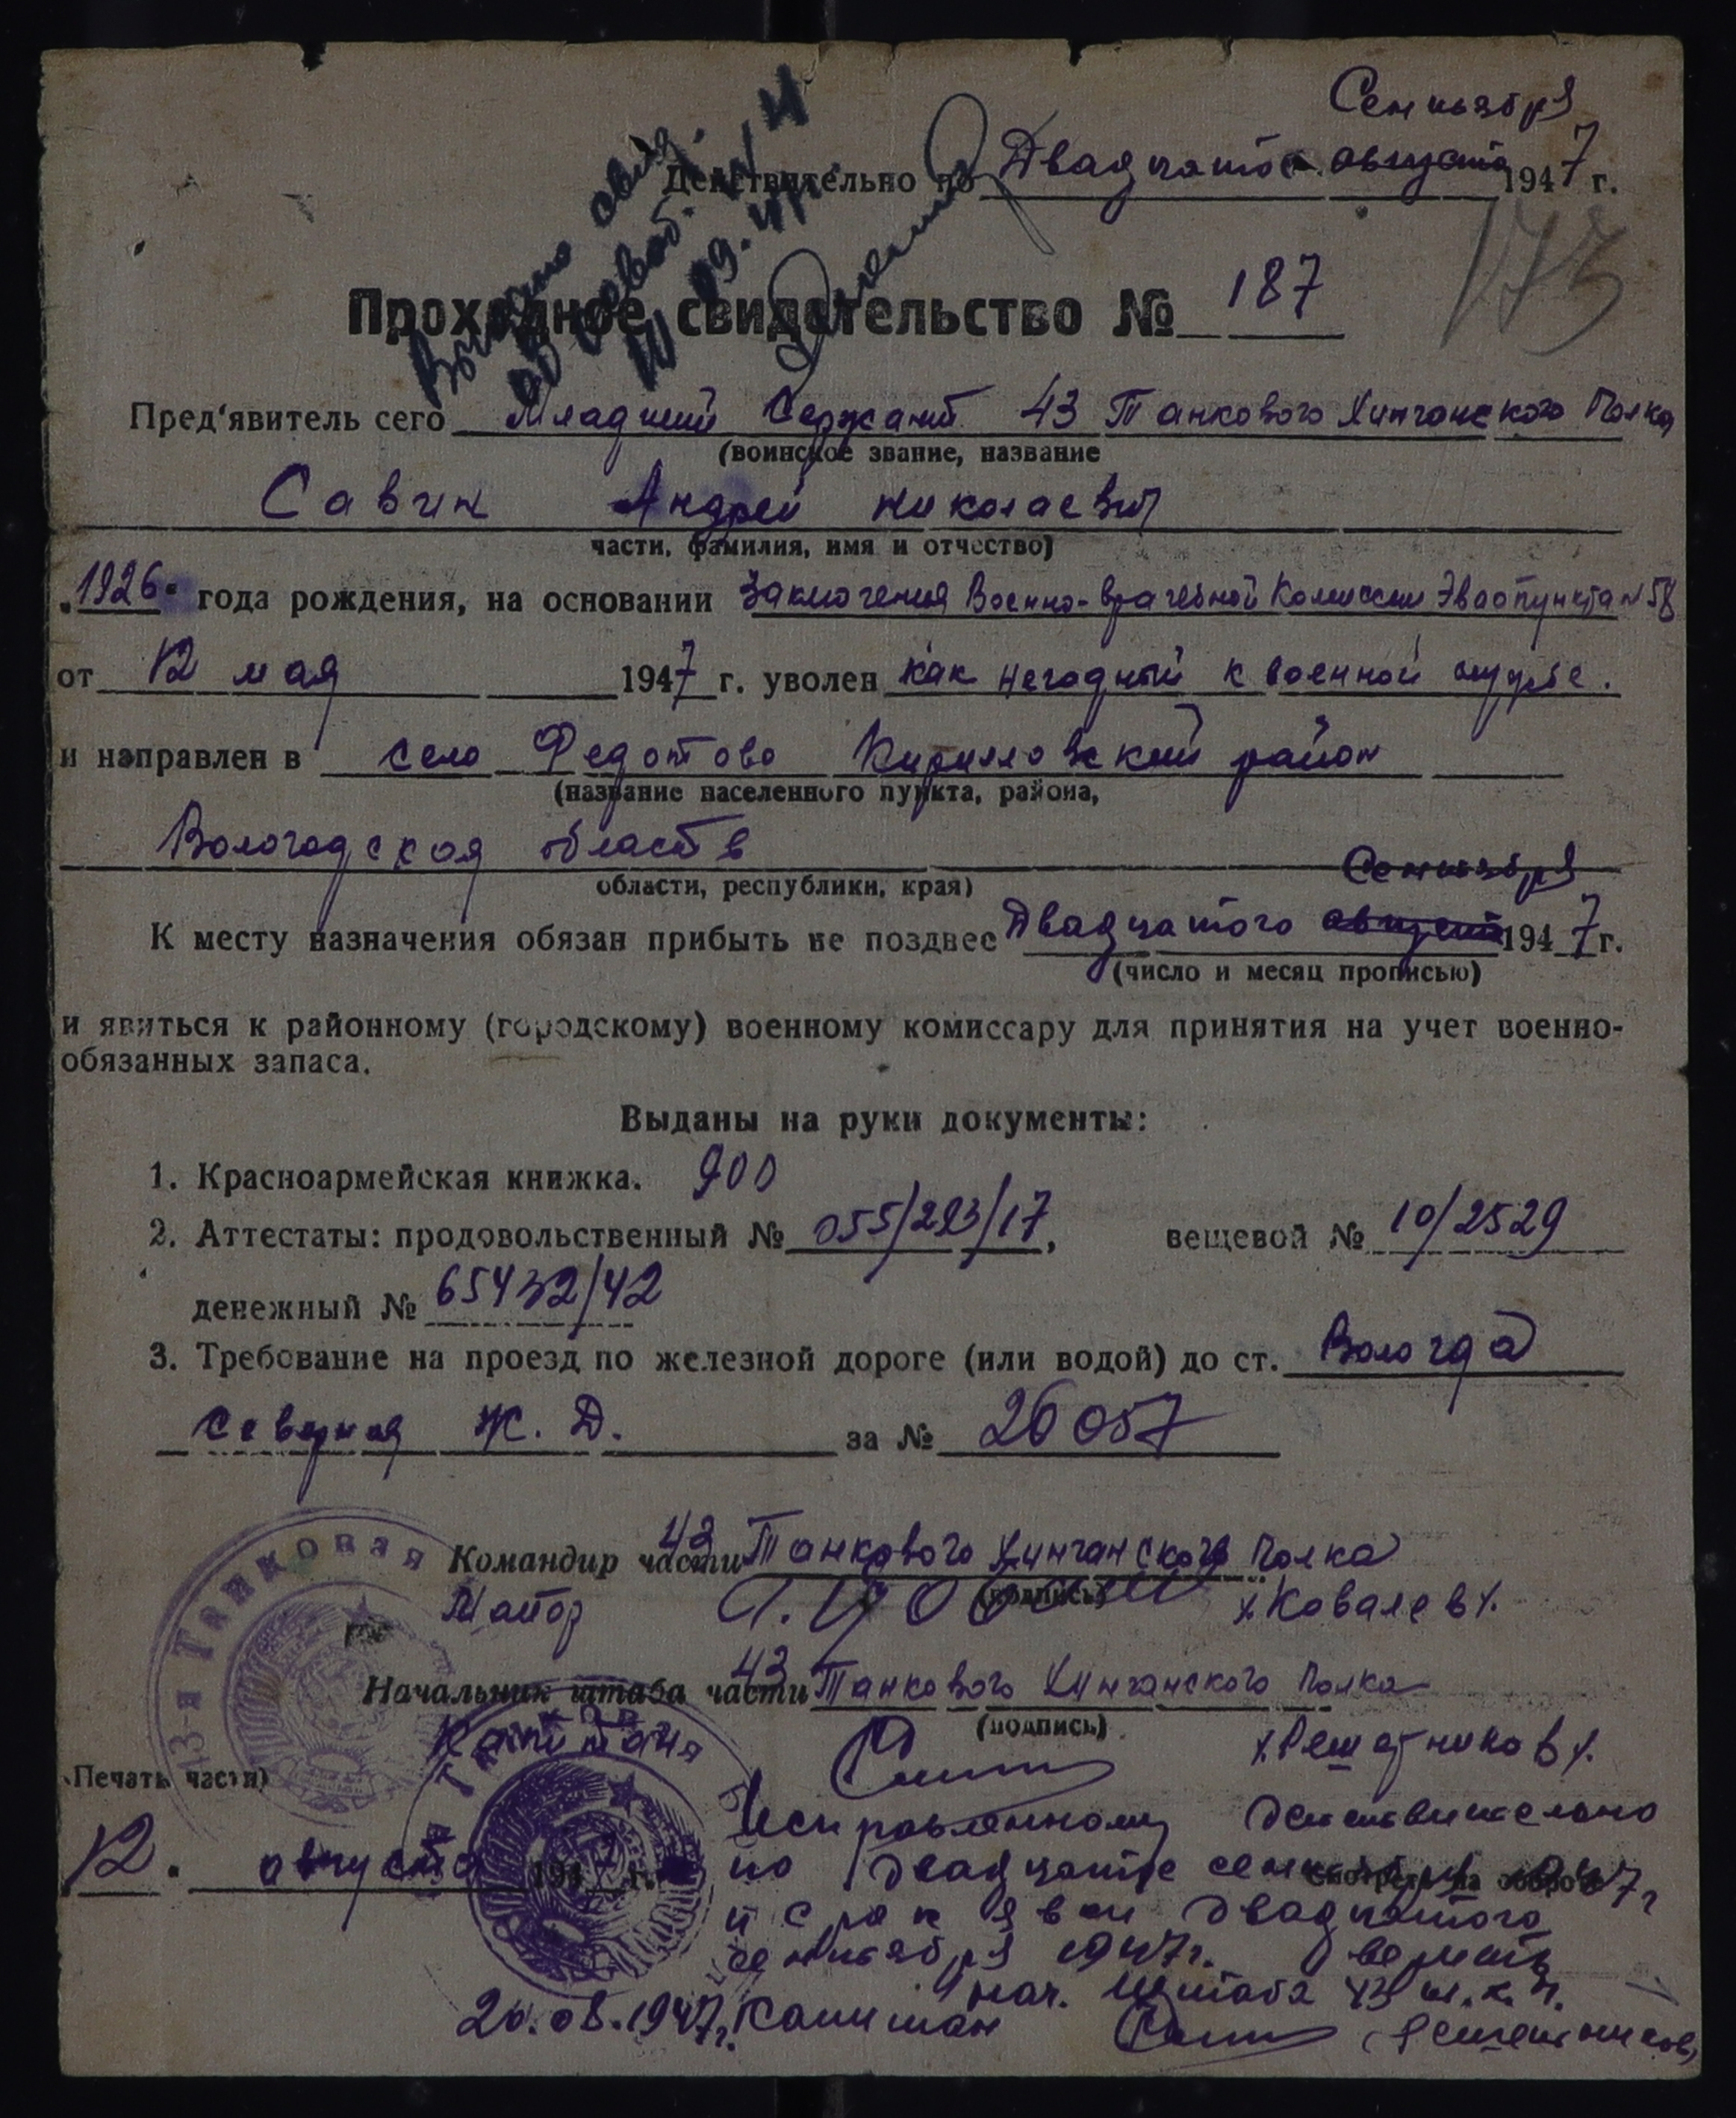 Сентября
Действительно по Двадцатое августа 1947 г.
173
Проходное свидетельство № 187
Пред'явитель сего Младший Сержант 43 Танкового Хинганского Полка
(воинское звание, название
Савин Андрей Николаевич
части, фамилия, имя и отчество)
1926 года рождения, на основании Заключения Военно-врачебной Комиссии Эвакопункта № 58
от 12 мая 1947 г. уволен как негодный к военной службе.
и направлен в село Федотово Кирилловский район
(название населенного пункта, района,
Вологодская область
области, республики, края)
Сентября
К месту назначения обязан прибыть не позднее Двадцатого августа 1947 г.
(число и месяц прописью)
и явиться к районному (городскому) военному комиссару для принятия на учет военно-
обязанных запаса.
Выданы на руки документы:
1. Красноармейская книжка. 900
2. Аттестаты: продовольственный № 055/293/17, вещевой № 10/2529
денежный № 65432/42
3. Требование на проезд по железной дороге (или водой) до ст. Вологда
Северная Ж. Д. за № 26057
43-я Танковая
Командир части 43 Танкового Хинганского полка
(подпись)
Майор /Ковалев/.
Начальник штаба части 43 Танкового Хинганского полка
(подпись)
Капитан /Решетников/.
Танковая
(Печать части)
Исправленному действительно
12. августа 194 г.
по двадцатое сентября 1947 г
Смотреть на обороте
и срок явки двадцатого
сентября 1947 г. верить
нач. штаба 43 т.х.п.
20.08.1947г. Капитан (Решетников)